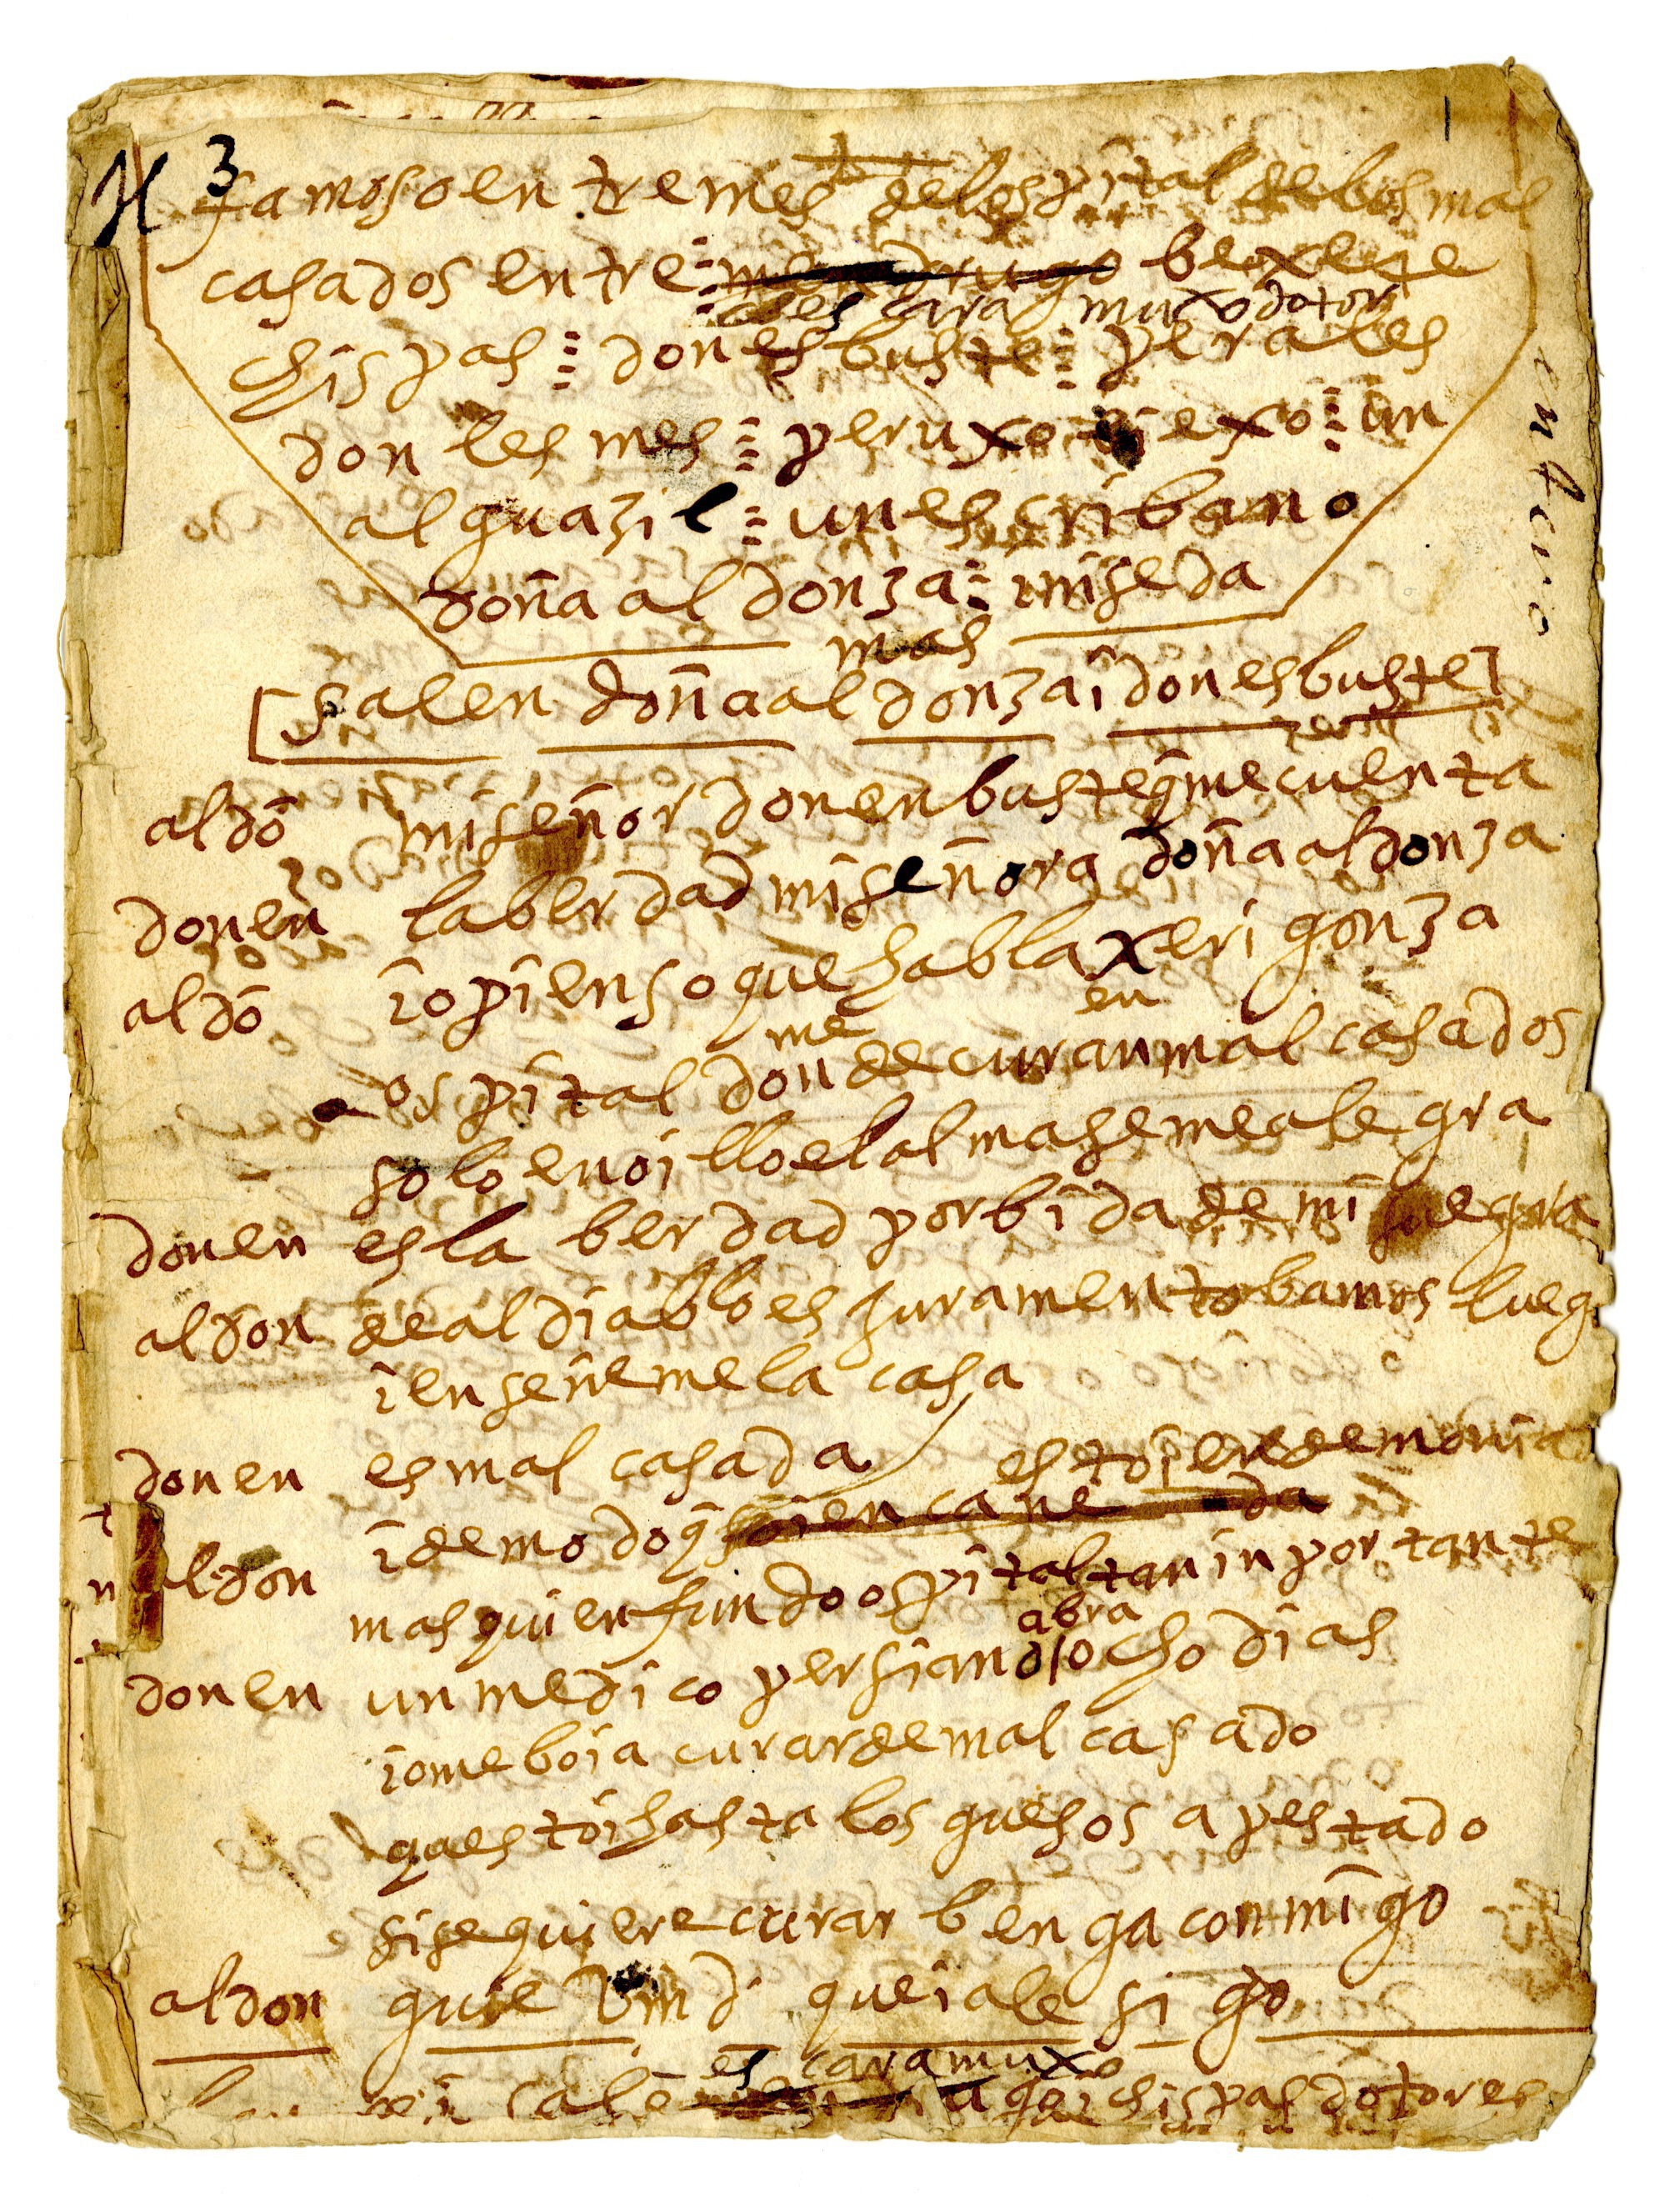 N 3
famoso entremes del ospital de los mal
casados entre bexete
escaramuxo dotor
chispas don esbuste perales
don lesmes peruxo biexo un
alguazil un escribano
doña aldonza miseda
mas
salen doña aldonza i don esbuste
aldō mi señor don enbuste q̄ me cuenta
don en la berdad mi señora doña aldonza
aldō io pienso que habla xerigonza
me en
ospital donde curan mal casados
solo en oillo el alma se me alegra
don en es la berdad por bida de mi suegra
aldon de al diablo es juramento bamos lueg
i enseñeme la casa
don en es mal casada
estoi endemonia
aldon i de modo q̄
mas quien fundo ospital tan inportante
abra
don en un medico persiano ocho dias
io me boi a curar de mal casado
ques toi hasta los guesos apestado
si se quiere curar benga conmigo
aldon guie Vmd que ia le sigo
escaramuxo
chispas dotores